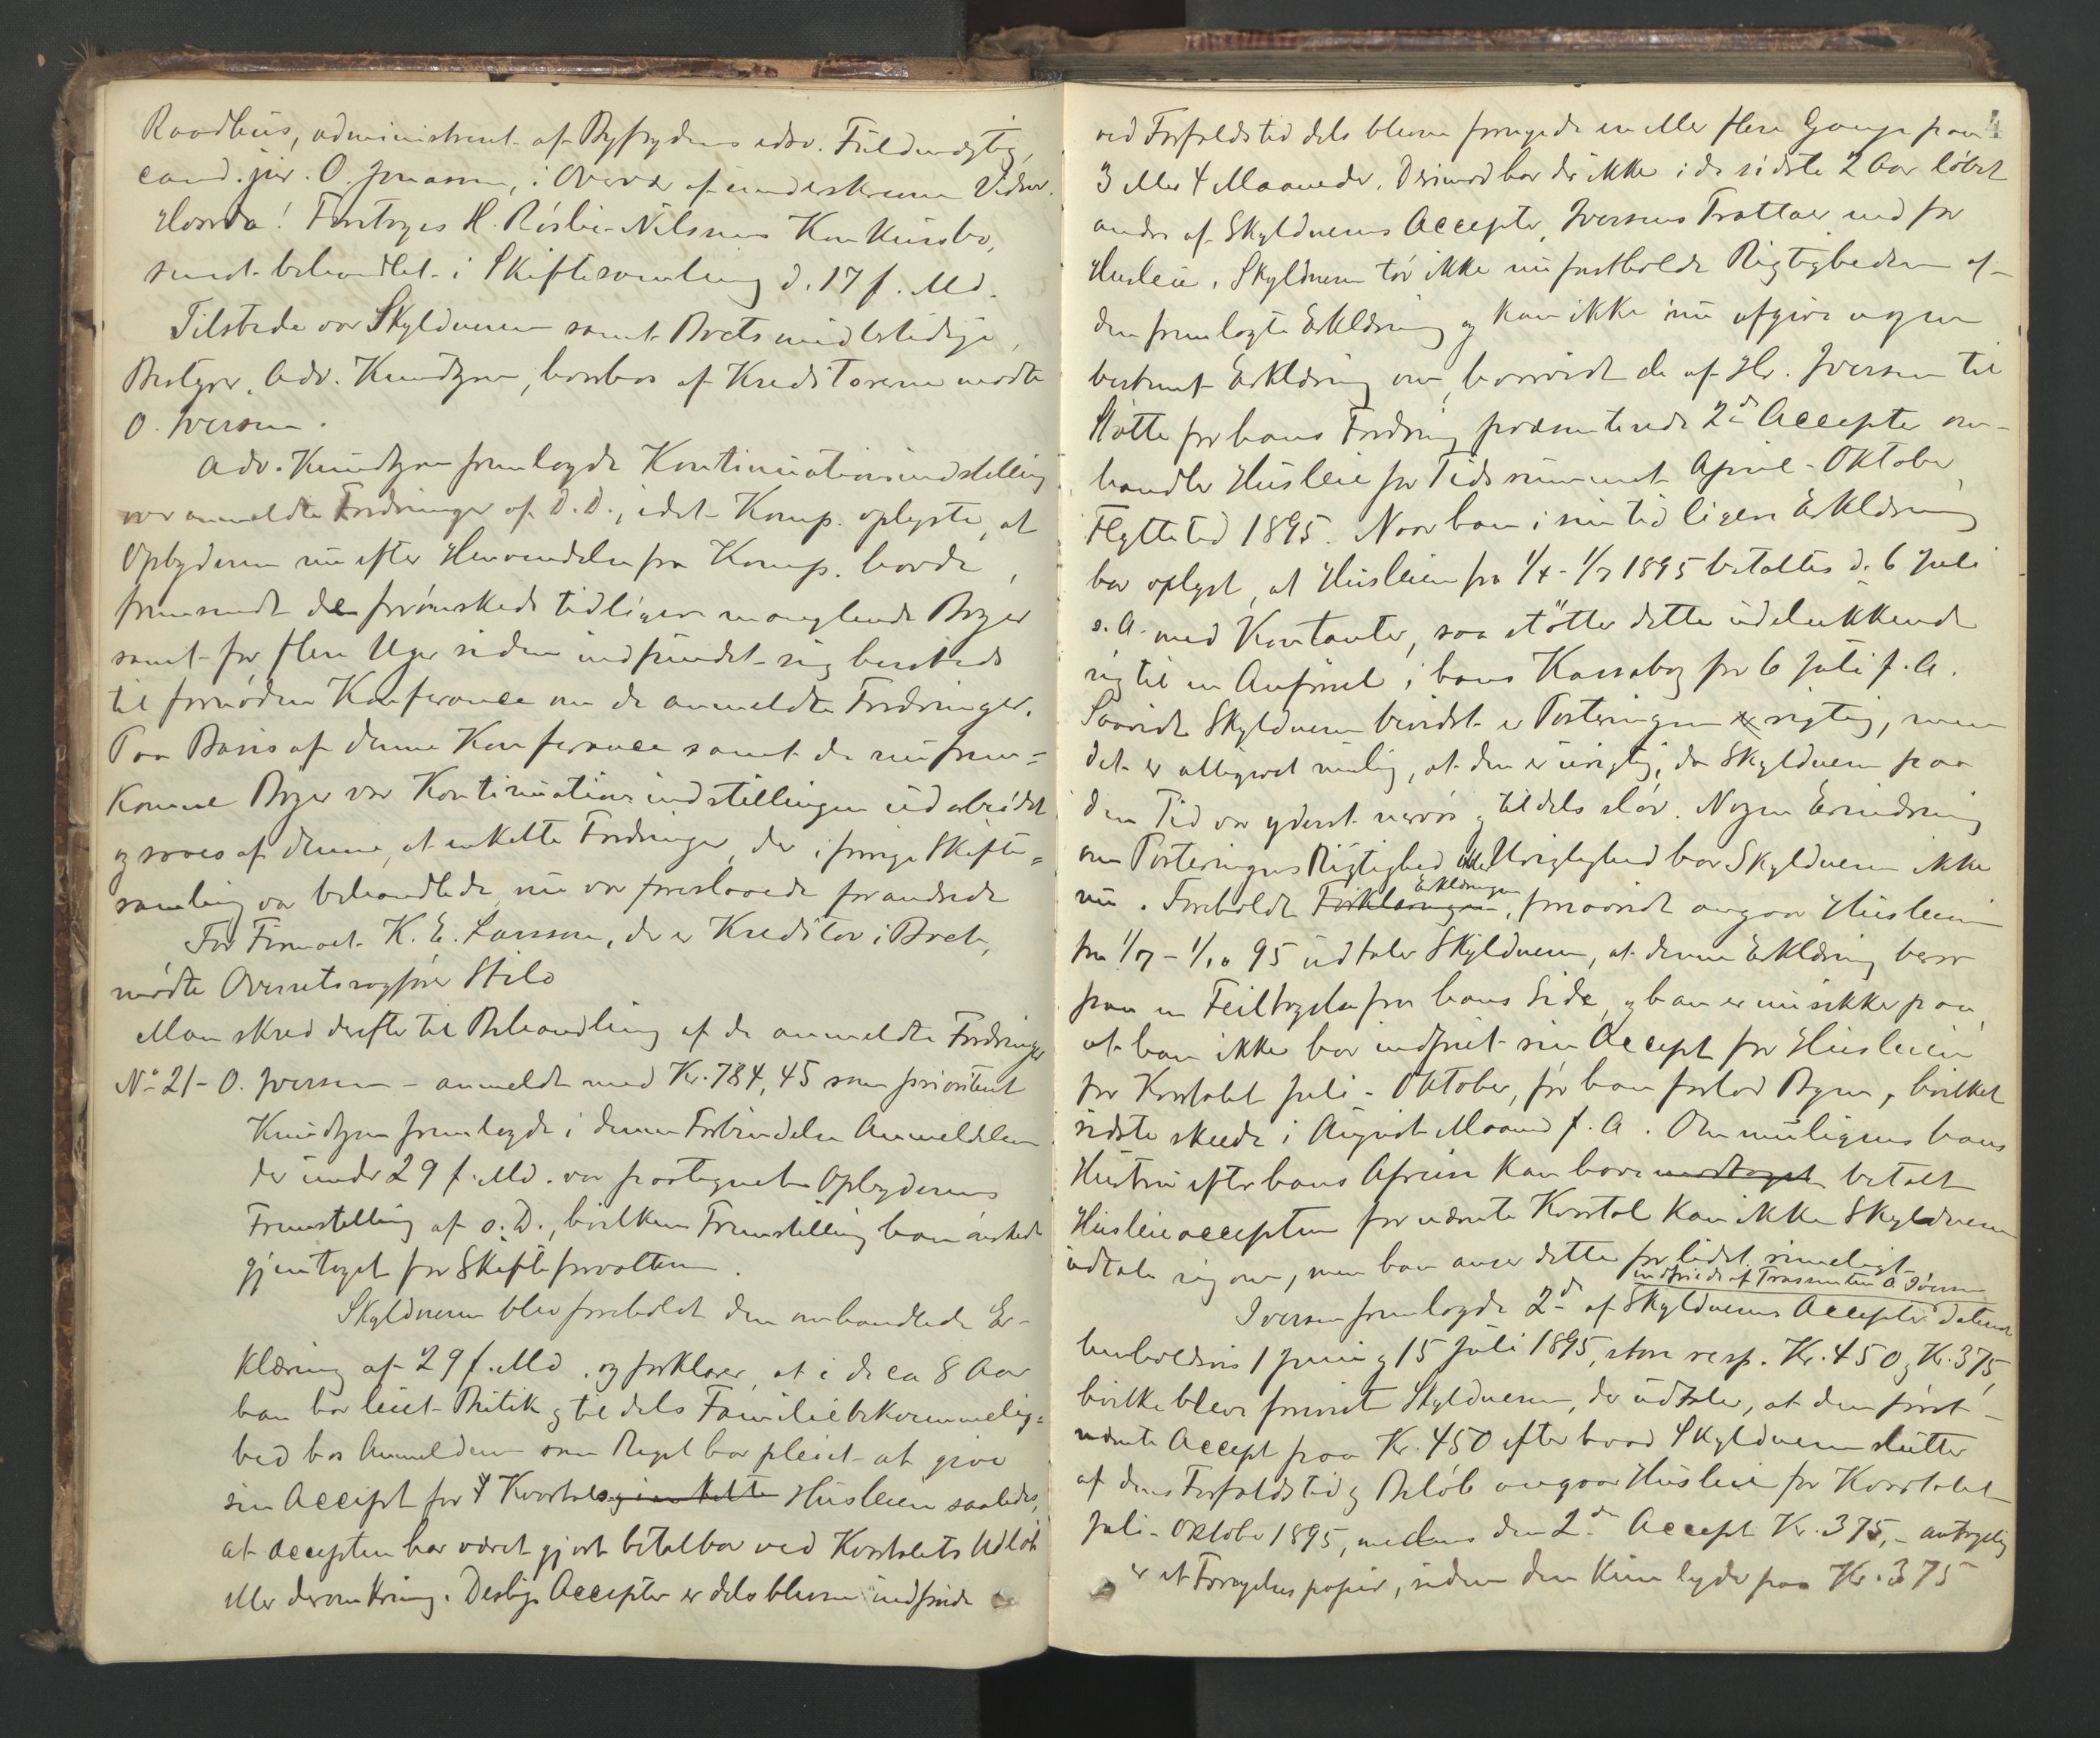 Raadhus, administreret af Byfogdens edsv. Fuldmægtig,
cand. jur. O. Jonassen, i Overvær af underskrevne Vidner.
Hvorda! Foretoges H. Risbie-Nilsens Konkursbo,
senest behandlet i Skiftesamling d. 17 f. Md.
Tilstede var Skyldneren samt Boets midlertidige
Bestyrer, Adv. Knudtzon, hvorhos af Kreditorerne mødte
O. Iversen.
Adv. Knudtzon fremlagde Kontinuationsindstilling
over anmeldte Fordringer af D. D., idet Komp. oplyste, at
Opbyderen nu efter Henvendelse fra Komp. havde
fremsendt de forønskede tidligere manglende Bøger
samt for flere Uger siden indfundet sig hersteds
til fornøden Konferance om de anmeldte Fordringer.
Paa Basis af denne Konferance samt de nu frem-
komne Bøger var Kontinuationsindstillingen udarbeidet
og saaes af denne, at enkelte Fordringer, der i forrige Skifte-
samling var behandlede, nu var foreslaaede forandrede
For Firmaet K. E. Larssen, der er Kreditor i Boet,
mødte Overretssagfører Hilo
Man skred derefter til Behandling af de anmeldte Fordringer
No 21 - O. Iversen - anmeldt med Kr. 784,45 som prioriteret
Knudtzon fremlagde i denne Forbindelse Anmeldelsen
der under 29 f. Md. var paategnet Opbyderens
Fremstilling af s. D., hvilken Fremstilling han ønskede
gjentaget for Skifteforvalteren.
Skyldneren blev foreholdt den omhandlede Er-
klæring af 29 f. Md. og forklarer, at i de ca 8 Aar
han har leiet Butik og tildels Familiebekvemmelig-
hed hos Anmelderen som Regel har pleiet at give
sin Accept for Kvartals Husleien saaledes,
at accepten har været gjort betalbar ved Kvartalets Udløb
eller deromkring. Deslige Accepter er dels blevne indfriede
4
ved Forfaldstid dels blevne fornyede en eller flere Gange paa
3 eller 4 Maaneder. Derimod har der ikke i de sidste 2 Aar løbet
andre af Skyldnerens Accepter, Iversens Trattaer end for
Husleie. Skyldneren tør ikke nu fastholde Rigtigheden af
den fremlagte Erklæring og kan ikke nu afgive nogen
bestemt Erklæring om, hvorvidt de af Hr. Iversen til
Støtte for hans Fordring præsenterede 2de Accepter om-
handler Husleie for Tidsrummet April-Oktober
Flyttetid 1895. Naar han i sin tidligere Erklæring
har oplyst, at Husleien fra 1/4 - 1/7 1895 betaltes d. 6 Juli
s. A. med Kontanter, saa støtter dette udelukkende
sig til en Anførsel i hans Kassabog for 6 Juli f. A.
Saavidt Skyldneren bevidst er Posteringen rigtig, men
det er alligevel mulig, at den er urigtig, da Skyldneren paa
den Tid var yderst nervøs og tildels sløv. Nogen Erindring
om Posteringens Rigtighed eller Urigtighed har Skyldneren ikke
nu. Foreholdt Forklaringen Erklæringen, forsaavidt angaar Husleien
fra 1/7 - 1/10 95 udtaler Skyldneren, at denne Erklæring beror
paa en Feiltagelse fra hans Side, og han er nu sikker paa
at han ikke har indfriet sin Accept for Husleien
for Kvartalet Juli - Oktober, før han forlod Byen, hvilket
sidste skede i August Maaned f. A. Om muligens hans
Hustru efter hans Afreise kan have modtaget betalt
Husleieaccepten for nævnte Kvartal kan ikke Skyldneren
udtale sig om, men han anser dette for lidet rimeligt.
indfriede af Trassenten O Iversen
Iversen fremlagde 2de af Skyldnerens Accepter daterede
henholdsvis 1 Juni og 15 Juli 1895, store resp. Kr. 450 og Kr. 375,
hvilke blev forevist Skyldneren, der udtaler, at den først-
nævnte Accept paa Kr. 450 efter hvad Skyldneren slutter
af dens Forfaldstid og Beløb angaar Husleie for Kvartalet
Juli - Oktober 1895, medens den 2den Accept Kr. 375,- antagelig
er et Fornyelsespapir, siden den kun lyder paa Kr. 375